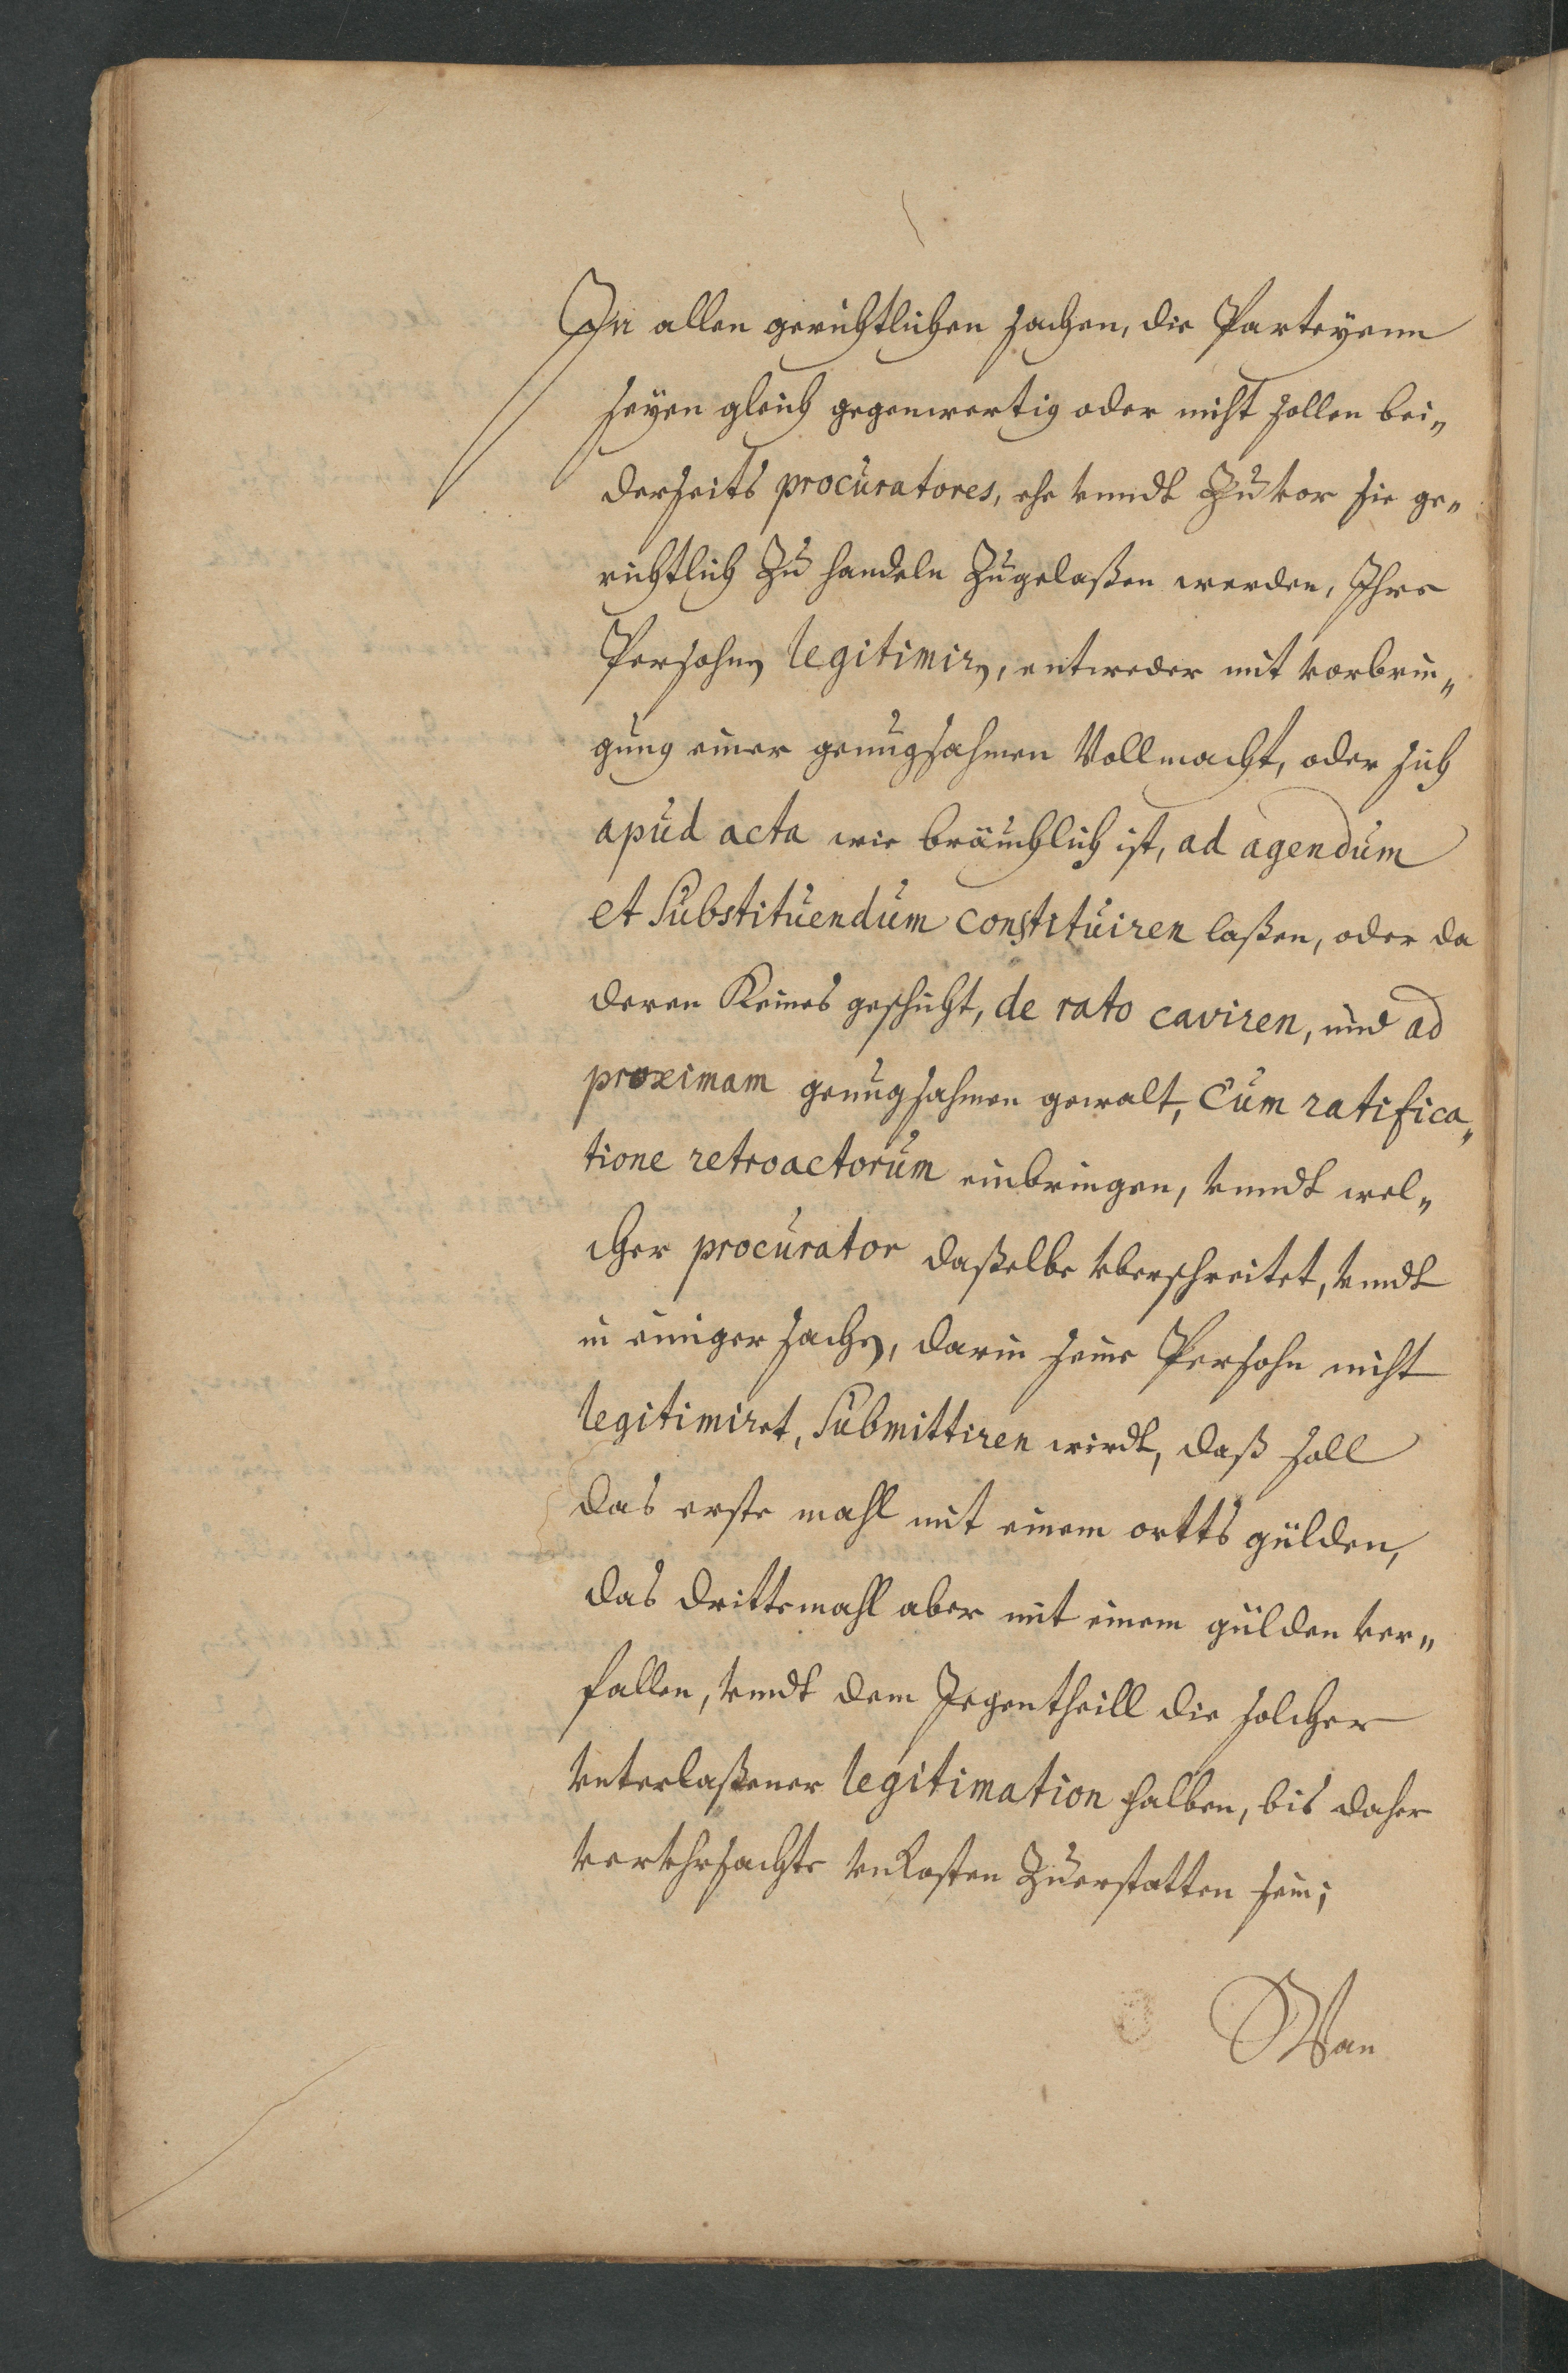 In allen gerichtlichen sachen, die Parteyenn
seyen gleich gegenwertig oder nicht sollen bei„
derseits procuratores, ehe vnndt Zuvor sie ge„
richtlich Zu handeln Zugelaßen werden, Ihre
Persohn legitimiren, entweder mit vorbrin„
gung einer genugsahmen Vollmacht, oder sich
apud acta wie bräuchlich ist, ad agendum
et Substituendum constituiren laßen, oder da
deren Keines geschicht, de rato caviren, und ad
proximam genugsahmen gewalt, Cum ratifica„
tione retroactorum einbringen, vnndt wel„
cher procurator daßelbe vberschreitet, vndt
in einiger sachen, darin seine Persohn nicht
legitimiret, Submittiren wirdt, daß soll
das erste mahl mit einem ortts gülden,
das drittemahl aber mit einem gülden ver„
fallen, vndt dem Jegentheill die solcher
vnterlaßener legitimation halben, bis daher
vervhrsachte vnkosten Zuerstatten sein;
Wan